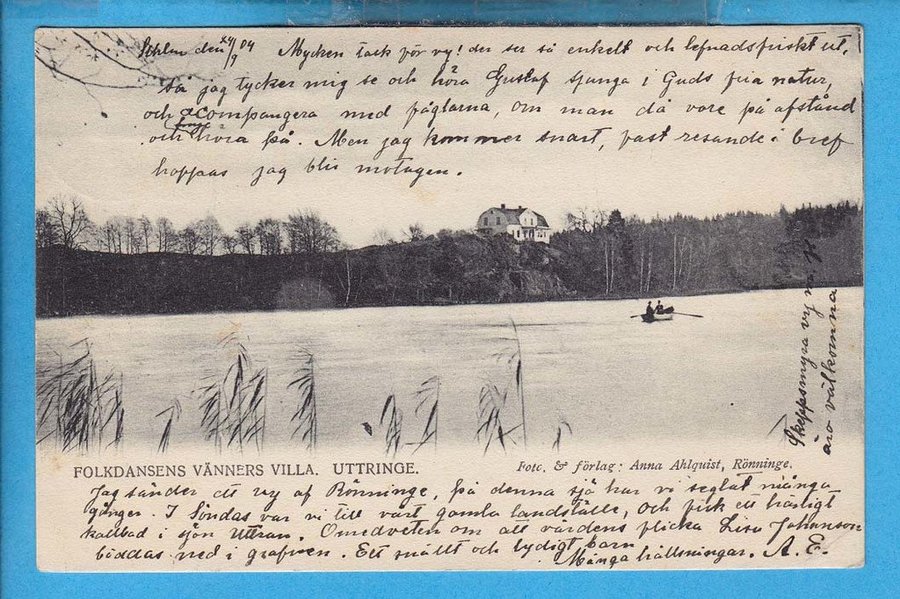 Sthlm den 24/9 04 Mycken tack för vy! der ser så enkelt och lefnadsfriskt ut,
så jag tycker mig se och höra Gustaf sjunga i Guds fria natur,
och acompangera med fåglarna, om man då vore på afstånd
och finge höra på. Men jag kommer snart, fast resande i bref
hoppas jag blir motagen.
Skeppsmyra vy
äro välkomna
FOLKDANSENS VÄNNERS VILLA. UTTRINGE.
Foto. & förlag: Anna Ahlquist, Rönninge.
Jag sänder ett vy af Rönninge, på denna sjö har vi seglat många
gånger. I Söndas var vi till vårt gamla landställe, och fick ett härligt
kallbad i sjön Uttran. Omedveten om att värdens flicka Lisa Johanson
bäddas ned i grafven. Ett snällt och lydigt barn
Många hällsningar. A.